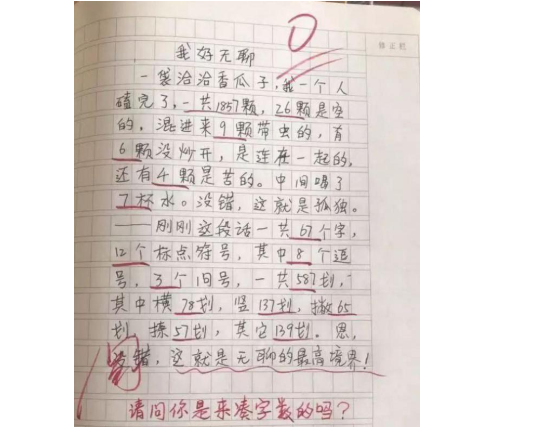 0
修正栏
我好无聊
一袋洽洽香瓜子，我一个人
嗑完了，一共1857颗，26颗是空
的，混进来9颗带虫的，有
6颗没炒开，是连在一起的，
还有4颗是苦的。中间喝了
7杯水。没错，这就是孤独。
——刚刚这段话一共67个字，
12个标点符号，其中8个逗
号，3个句号，一共587划，
其中横78划，竖137划，撇65
划 捺57划，其它139划。恩，
错，这就是无聊的最高境界！
阅
请问你是来凑字数的吗？